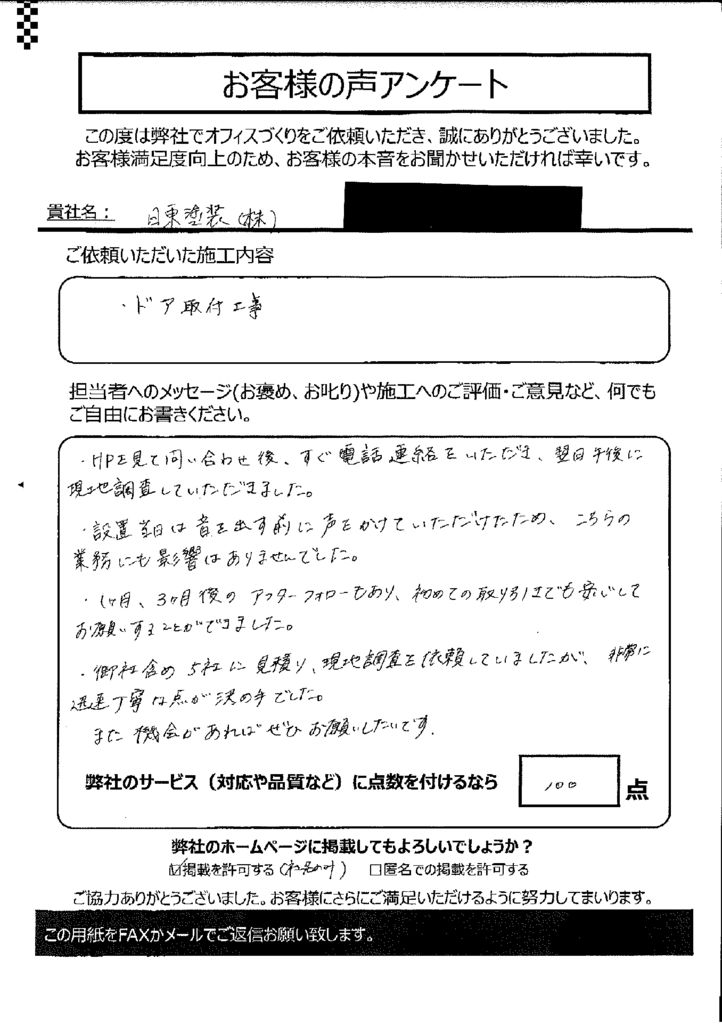 お客様の声アンケート
この度は弊社でオフィスづくりをご依頼いただき、誠にありがとうございました。
お客様満足度向上のため、お客様の本音をお聞かせいただければ幸いです。
貴社名： 日東塗装(株)
ご依頼いただいた施工内容
・ドア取付工事
担当者へのメッセージ(お褒め、お叱り)や施工へのご評価・ご意見など、何でも
ご自由にお書きください。
・HPを見て問い合わせ後、すぐ電話連絡をいただき、翌日午後に
現地調査していただきました。
・設置当日は音を出す前に声をかけていただけたため、こちらの
業務にも影響はありませんでした。
・1ヶ月、3ヶ月後のアフターフォローもあり、初めての取り引きでも安心して
お願いすることができました。
・御社含め5社に見積り、現地調査を依頼していましたが、非常に
迅速丁寧な点が決め手でした。
また機会があればぜひお願いしたいです.
弊社のサービス（対応や品質など）に点数を付けるなら 100 点
弊社のホームページに掲載してもよろしいでしょうか？
☑掲載を許可する(社名のみ) □匿名での掲載を許可する
ご協力ありがとうございました。お客様にさらにご満足いただけるように努力してまいります。
この用紙をFAXかメールでご返信お願い致します。